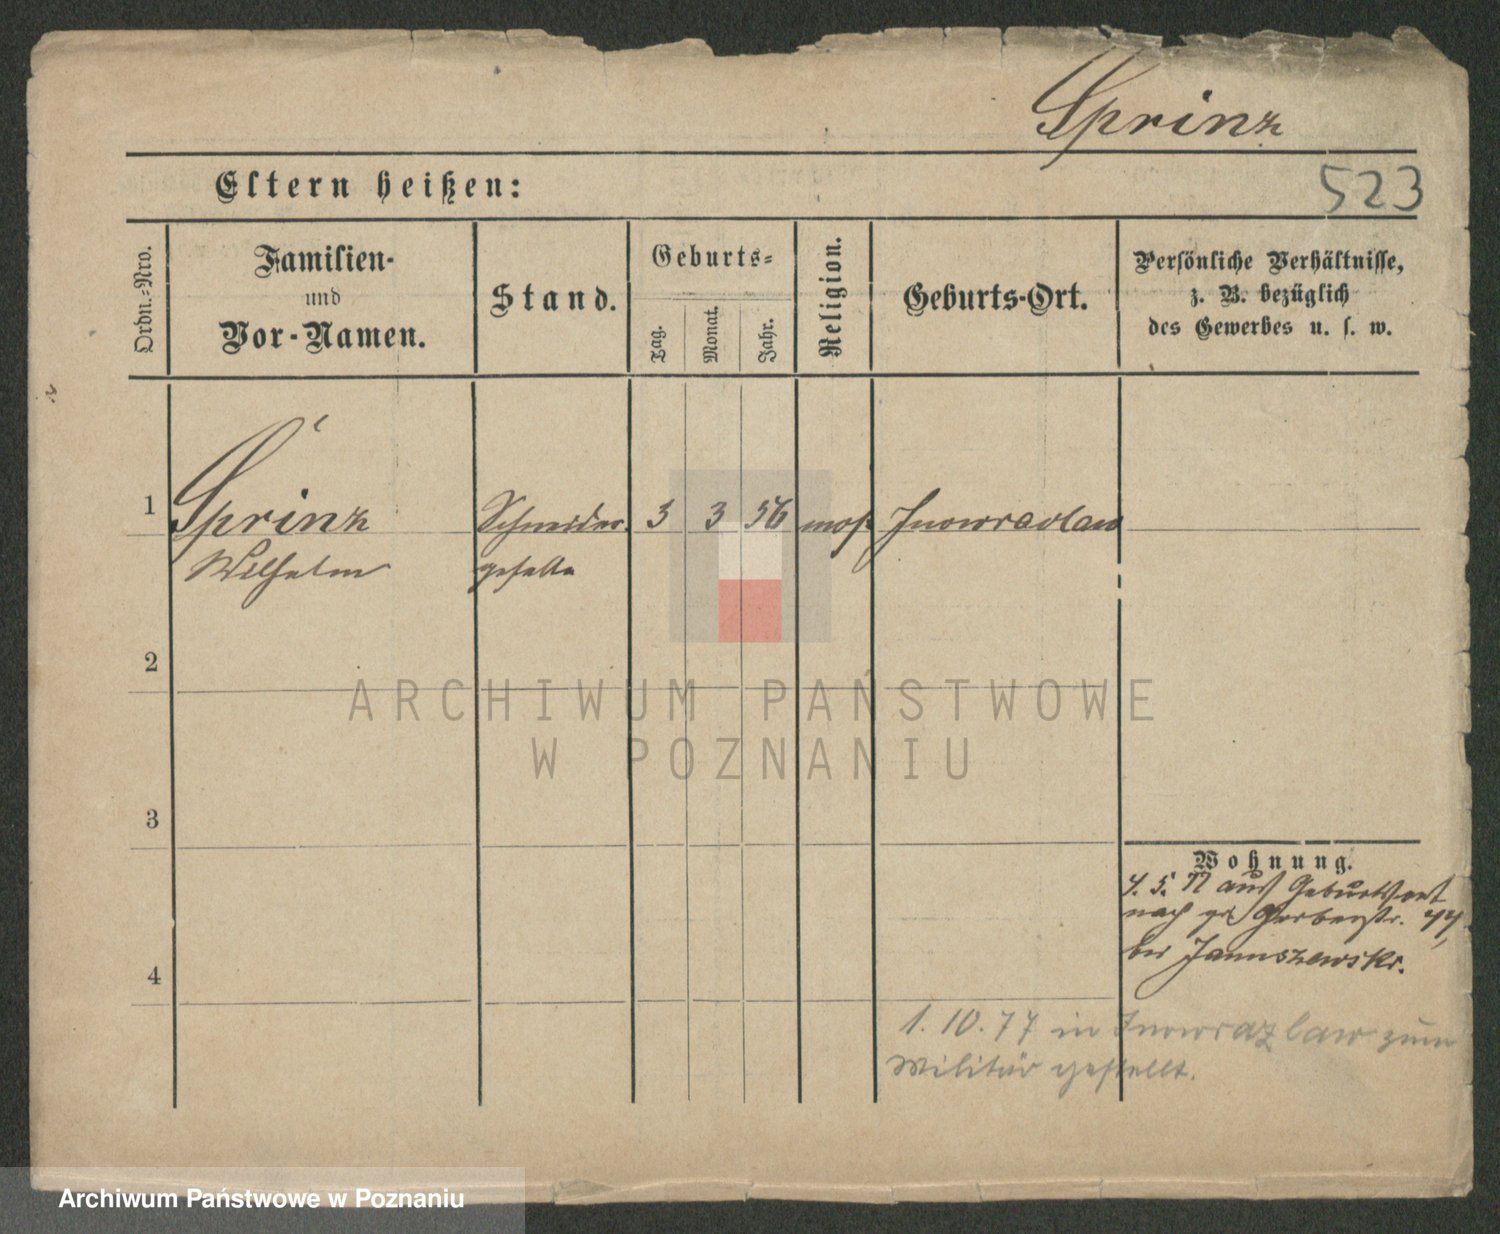 Sprinz
Eltern heißen:
523
Ordn.-Nro.
Familien-
und
Vor-Namen.
Stand.
Geburts-
Tag.
Monat.
Jahr.
Religion.
Geburts-Ort.
Persönliche Verhältnisse,
z. B. bezüglich
des Gewerbes u. s. w.
1
Sprinz
Wilhelm
Schneider
geselle
3
3
56
mos
Inowraclaw
2
ARCHIWUM PAŃSTWOWE
W POZNANIU
3
Wohnung.
4. 5. 77 aus Geburtsort
nach gr Gerberstr. 44,
bei Januszewski.
4
1. 10. 77 in Inowrazlaw zum
Militär gestellt.
Archiwum Państwowe w Poznaniu